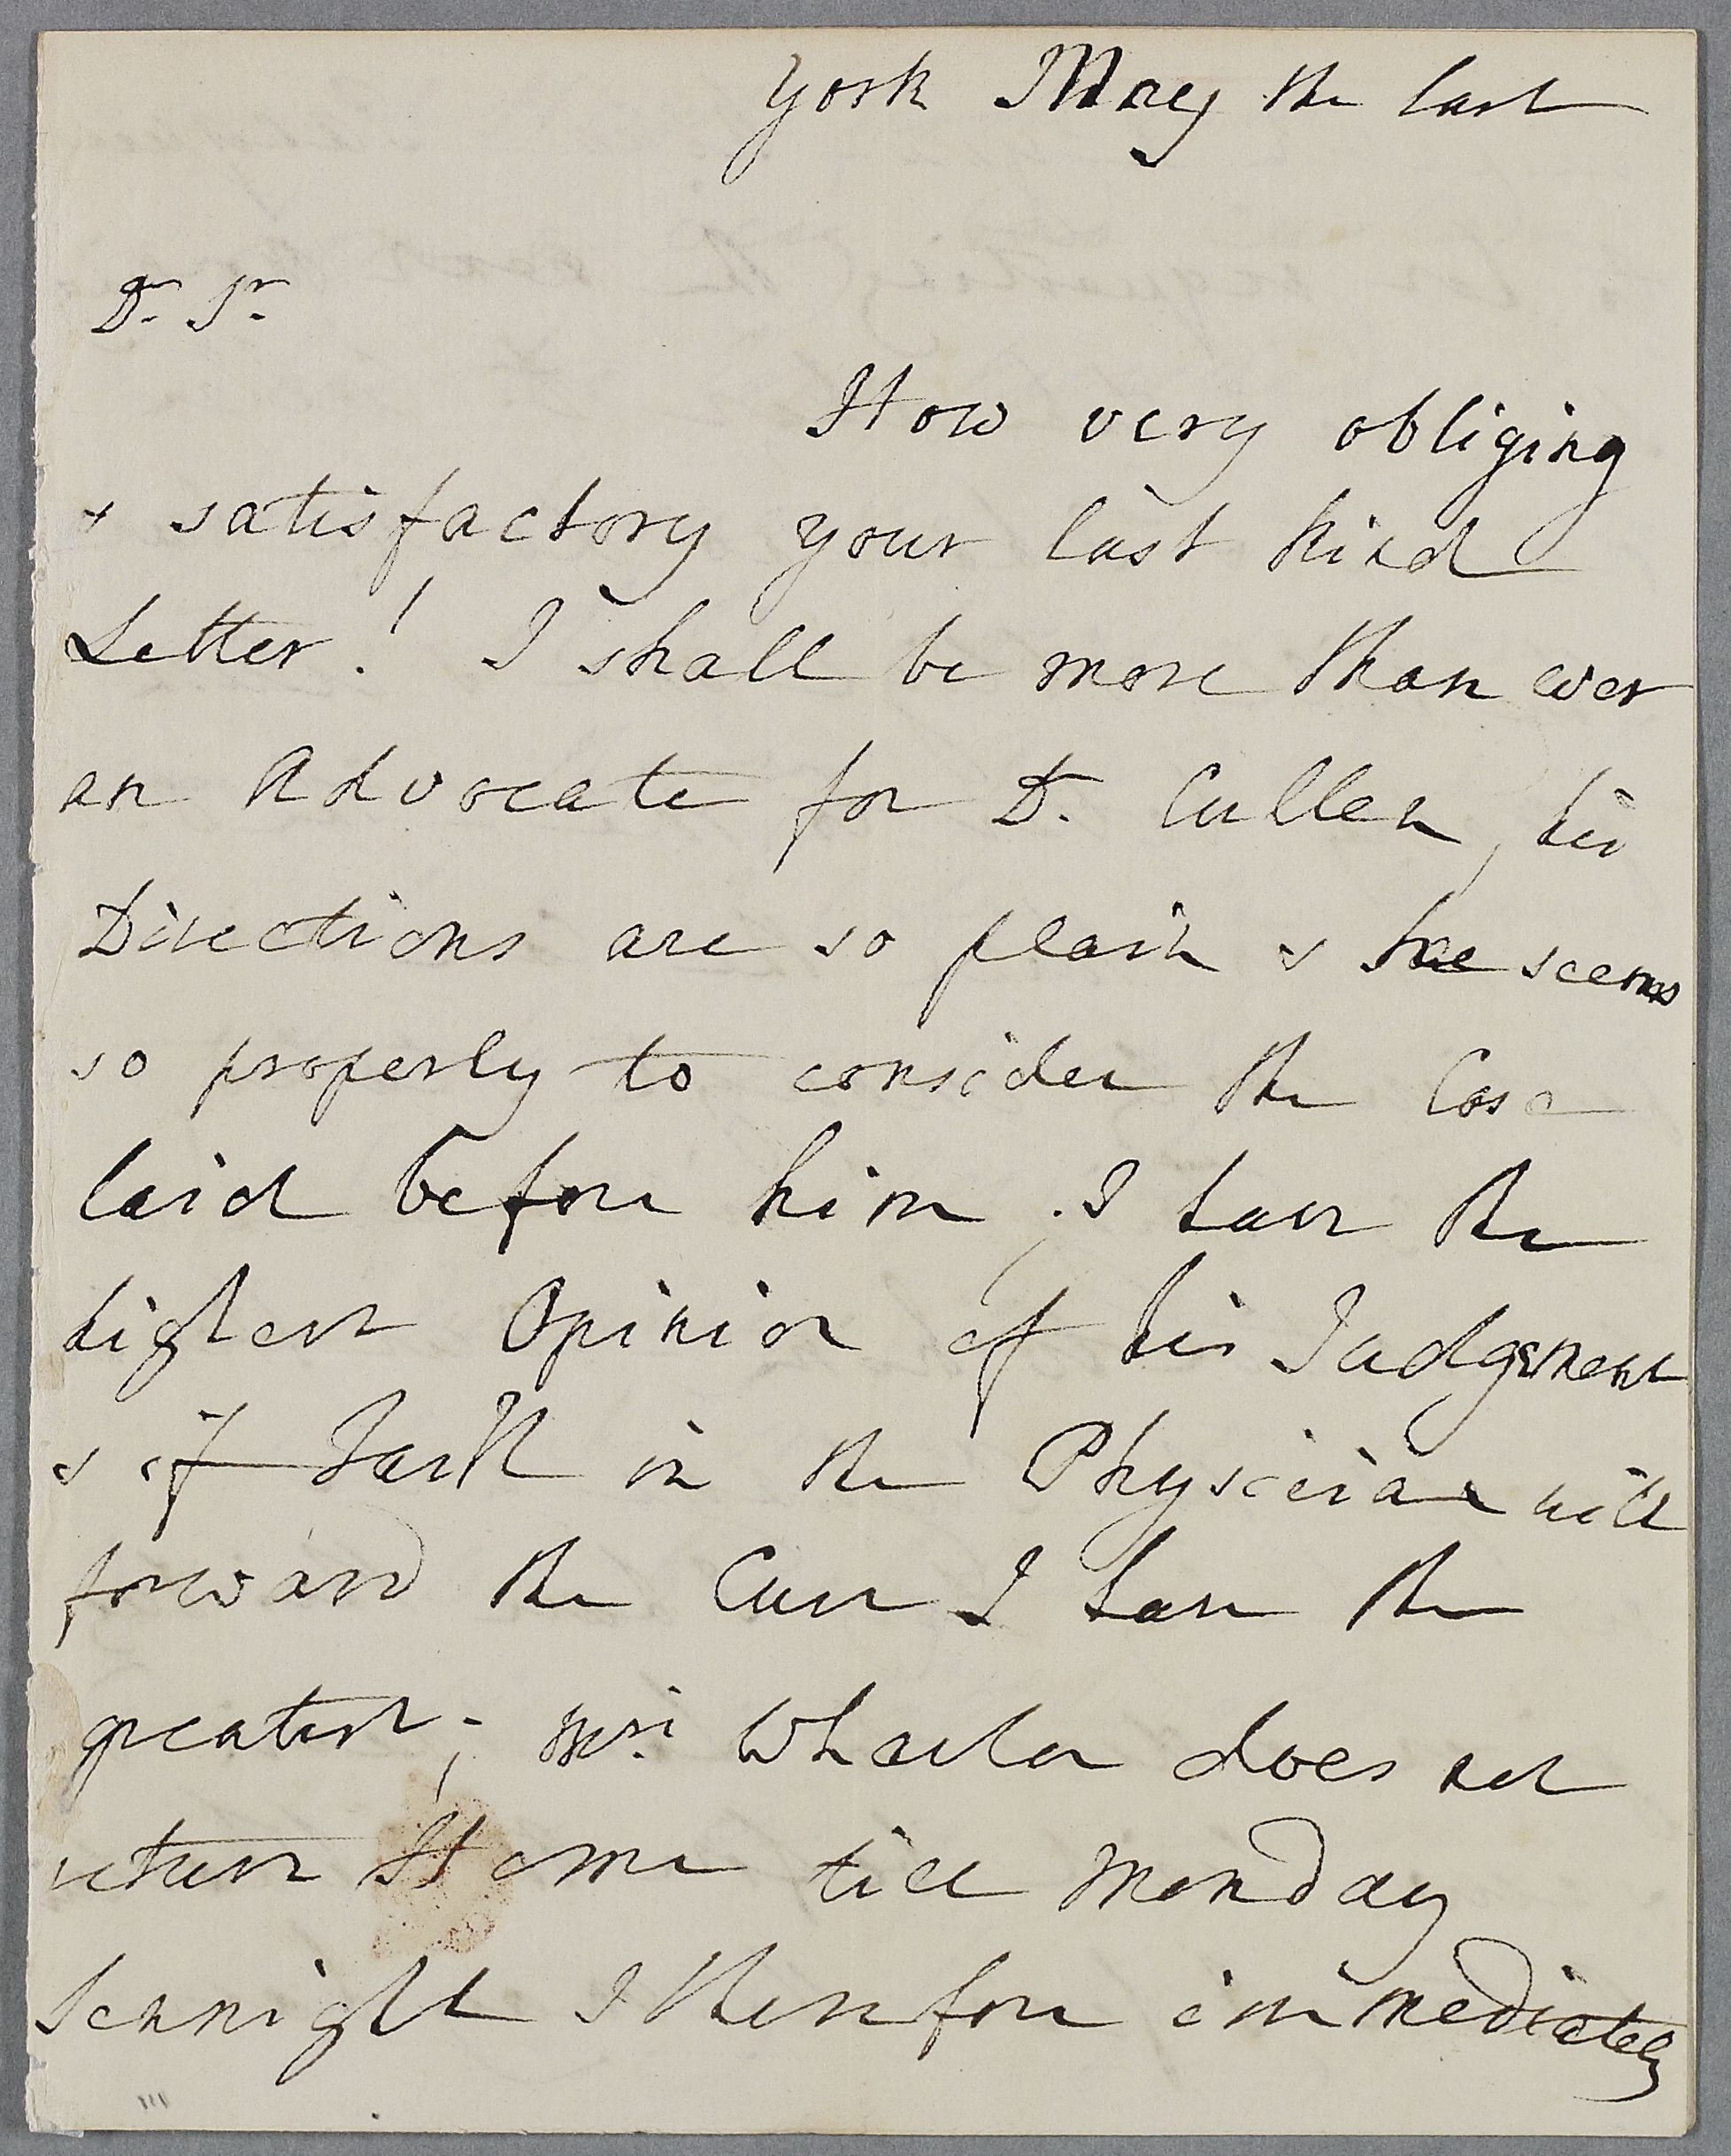 York May the last
Dr. Sr.
How very obliging
& satisfactory your last kind
Letter! I shall be more than ever
an Advocate for D. Cullen, his
Directions are so plain & he seems
so properly to consider the Case
laid before him, I have the
highest Opinion of his Judgment
& if Faith in the Physician will
forward the Cure I have the
greatest; Mrs. Wharton does not
return Home till Monday
Sennight I therefore immediately